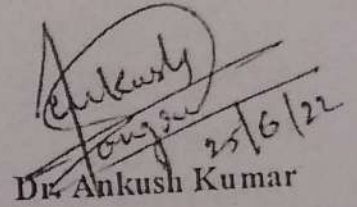 Ankush
25/6/22
Dr. Ankush Kumar